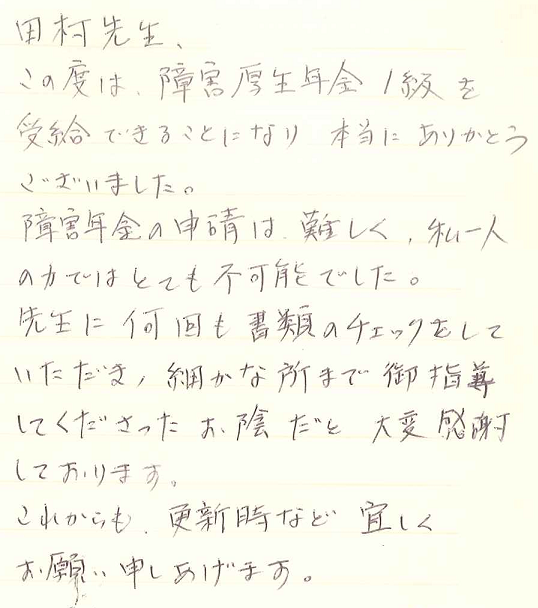 田村先生、
この度は、障害厚生年金1級を
受給できることになり 本当にありがとう
ございました。
障害年金の申請は、難しく、私一人
の力ではとても不可能でした。
先生に何回も書類のチェックをして
いただき、細かな所まで御指導
してくださったお陰だと 大変感謝
しております。
これからも、更新時など 宜しく
お願い申しあげます。